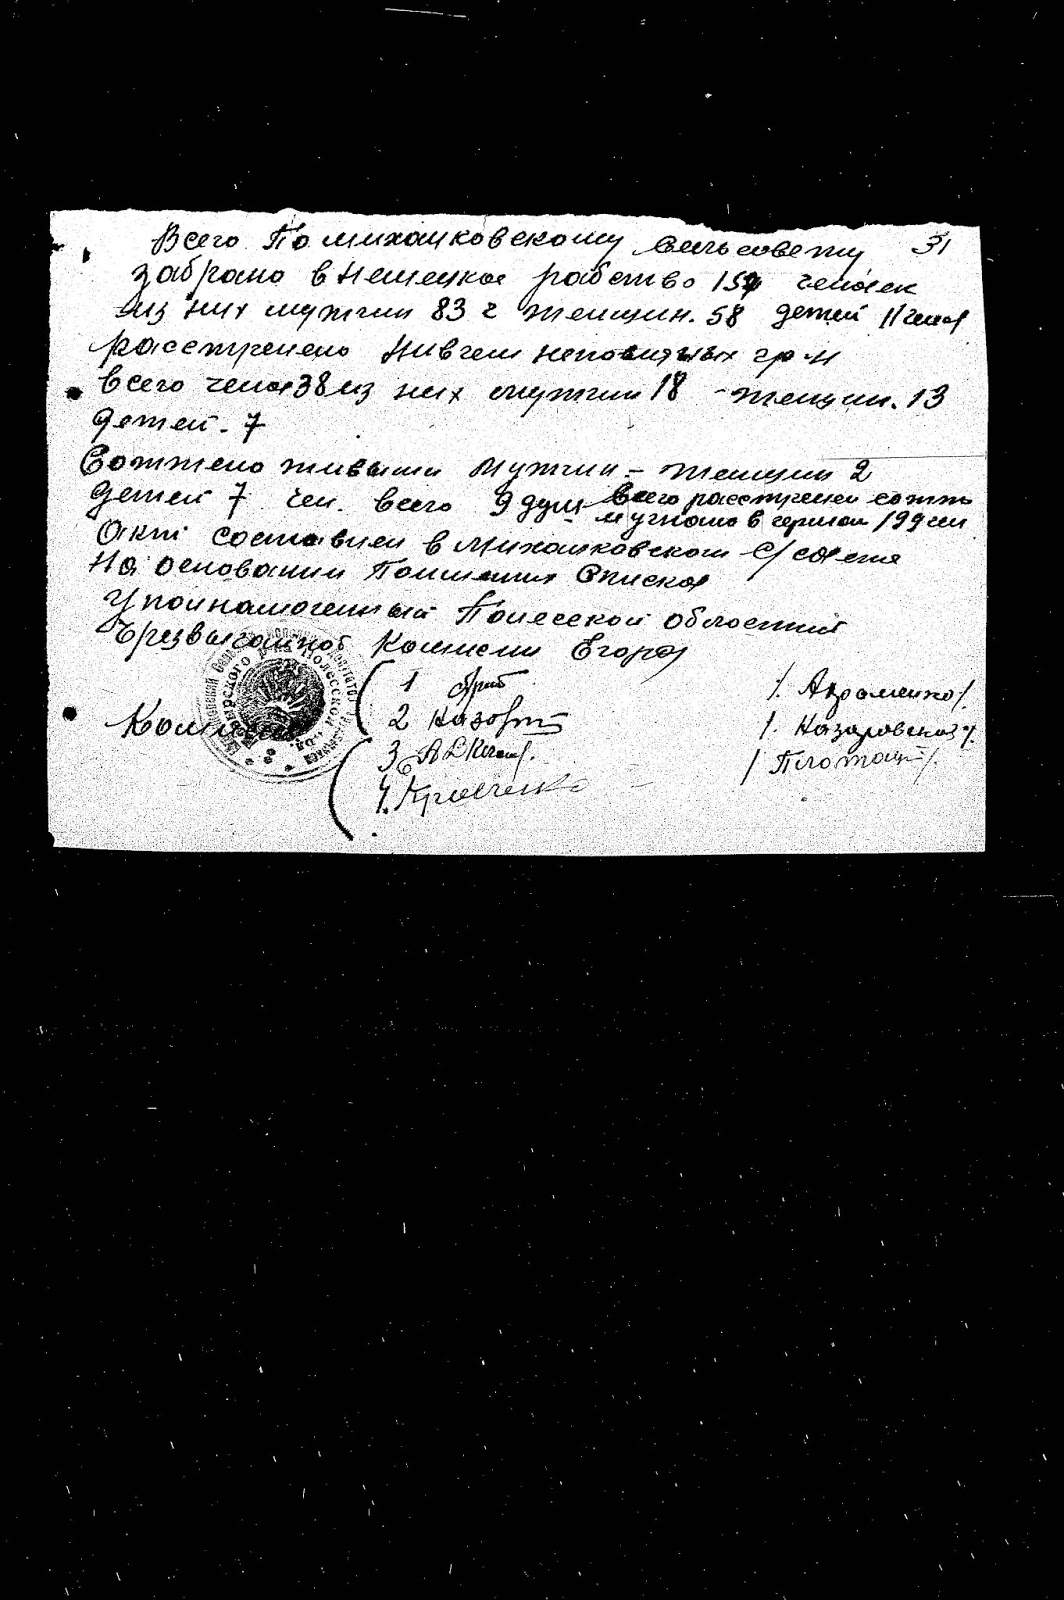 Всего По михалковскому сельсовету 31
забрано в немецкое рабство 152 человек
из них мужчин 83 ч женщин. 58 детей 11 челов
расстрелено ни в чем неповинных гр-н
всего чело 38 из них мужчин 18 - женщин. 13
детей - 7
Сожжено живыми мужчин - женщин 2
детей 7 чел. всего 9 душ
Всего расстрелен сожж
мучжоно в герман 199 чел
Акт составлен в Михалковском с/совете
На основании Поименых Списков
Уполнамоченный Полесской областной
Чрезвычайной Комиссии Егоров
Комиссия
1 / Авраменко /
2 / Назаровская /
3 / Плотнац /
4. Кравченко